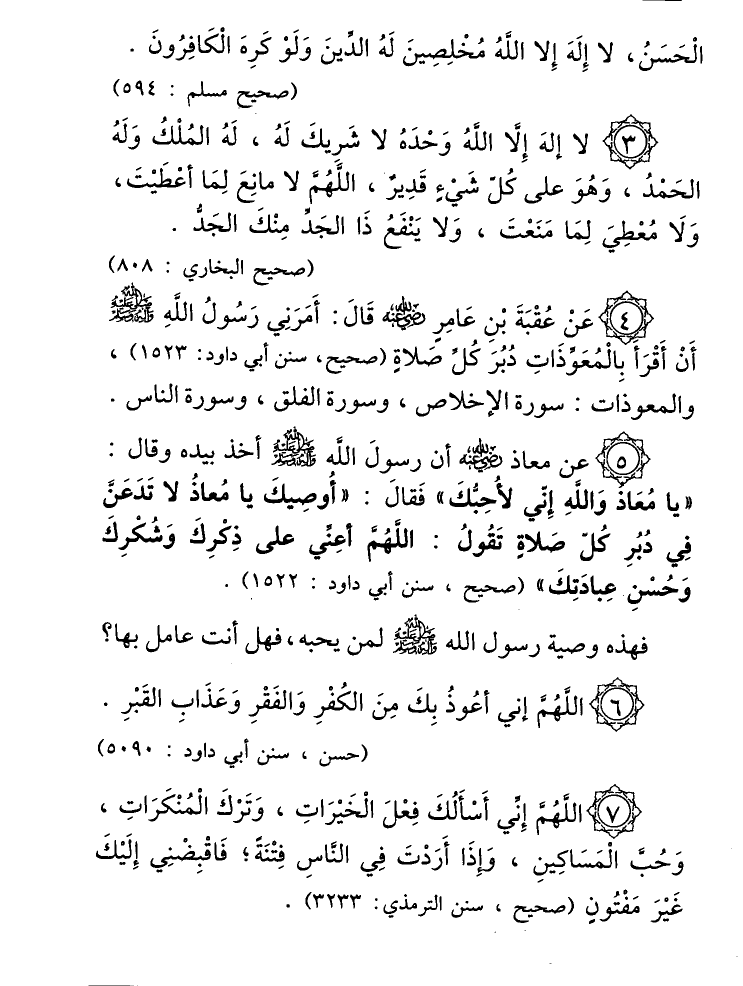 الْحَسَنُ، لا إِلَهَ إِلا اللَّهُ مُخْلِصِينَ لَهُ الدِّينَ وَلَوْ كَرِهَ الْكَافِرُونَ .
(صحيح مسلم : ٥٩٤)
٣ لا إلهَ إِلَّا اللَّهُ وَحْدَهُ لا شَرِيكَ لَهُ ، لَهُ المُلْكُ وَلَهُ
الحَمْدُ ، وَهُوَ على كُلّ شَيْءٍ قَدِيرٌ ، اللَّهُمَّ لا مانِعَ لِمَا أعْطَيْتَ،
وَلَا مُعْطِيَ لِمَا مَنَعْتَ ، وَلا يَنْفَعُ ذَا الجَدِّ مِنْكَ الجَدُّ .
(صحيح البخاري : ٨٠٨)
٤ عَنْ عُقْبَةَ بْنِ عَامِرٍ رضي الله عنه قَالَ: أَمَرَنِي رَسُولُ اللَّهِ ﷺ
أَنْ أَقْرَأَ بِالْمُعَوِّذَاتِ دُبُرَ كُلِّ صَلاةٍ (صحيح، سنن أبي داود: ١٥٢٣) ،
والمعوذات : سورة الإخلاص ، وسورة الفلق ، وسورة الناس .
٥ عن معاذ رضي الله عنه أن رسولَ اللَّه ﷺ أخذ بيده وقال :
«يا مُعَاذُ وَاللَّهِ إِنّي لأُحِبُّكَ» فَقالَ : «أُوصِيكَ يا مُعاذُ لا تَدَعَنَّ
فِي دُبُرِ كُلّ صَلاةٍ تَقُولُ : اللَّهُمَّ أعِنِّي على ذِكْرِكَ وَشُكْرِكَ
وَحُسْنِ عِبادَتِكَ» (صحيح ، سنن أبي داود : ١٥٢٢) .
فهذه وصية رسول الله ﷺ لمن يحبه،فهل أنت عامل بها؟
٦ اللَّهُمَّ إني أعُوذُ بِكَ مِنَ الكُفْرِ وَالفَقْرِ وَعَذَابِ القَبْرِ .
(حسن ، سنن أبي داود : ٥٠٩٠)
٧ اللَّهُمَّ إِنِّي أَسْأَلُكَ فِعْلَ الْخَيْرَاتِ ، وَتَرْكَ الْمُنْكَرَاتِ ،
وَحُبَّ الْمَسَاكِينِ ، وَإِذَا أَرَدْتَ فِي النَّاسِ فِتْنَةً؛ فَاقْبِضْنِي إِلَيْكَ
غَيْرَ مَفْتُونٍ (صحيح ، سنن الترمذي: ٣٢٣٣) .